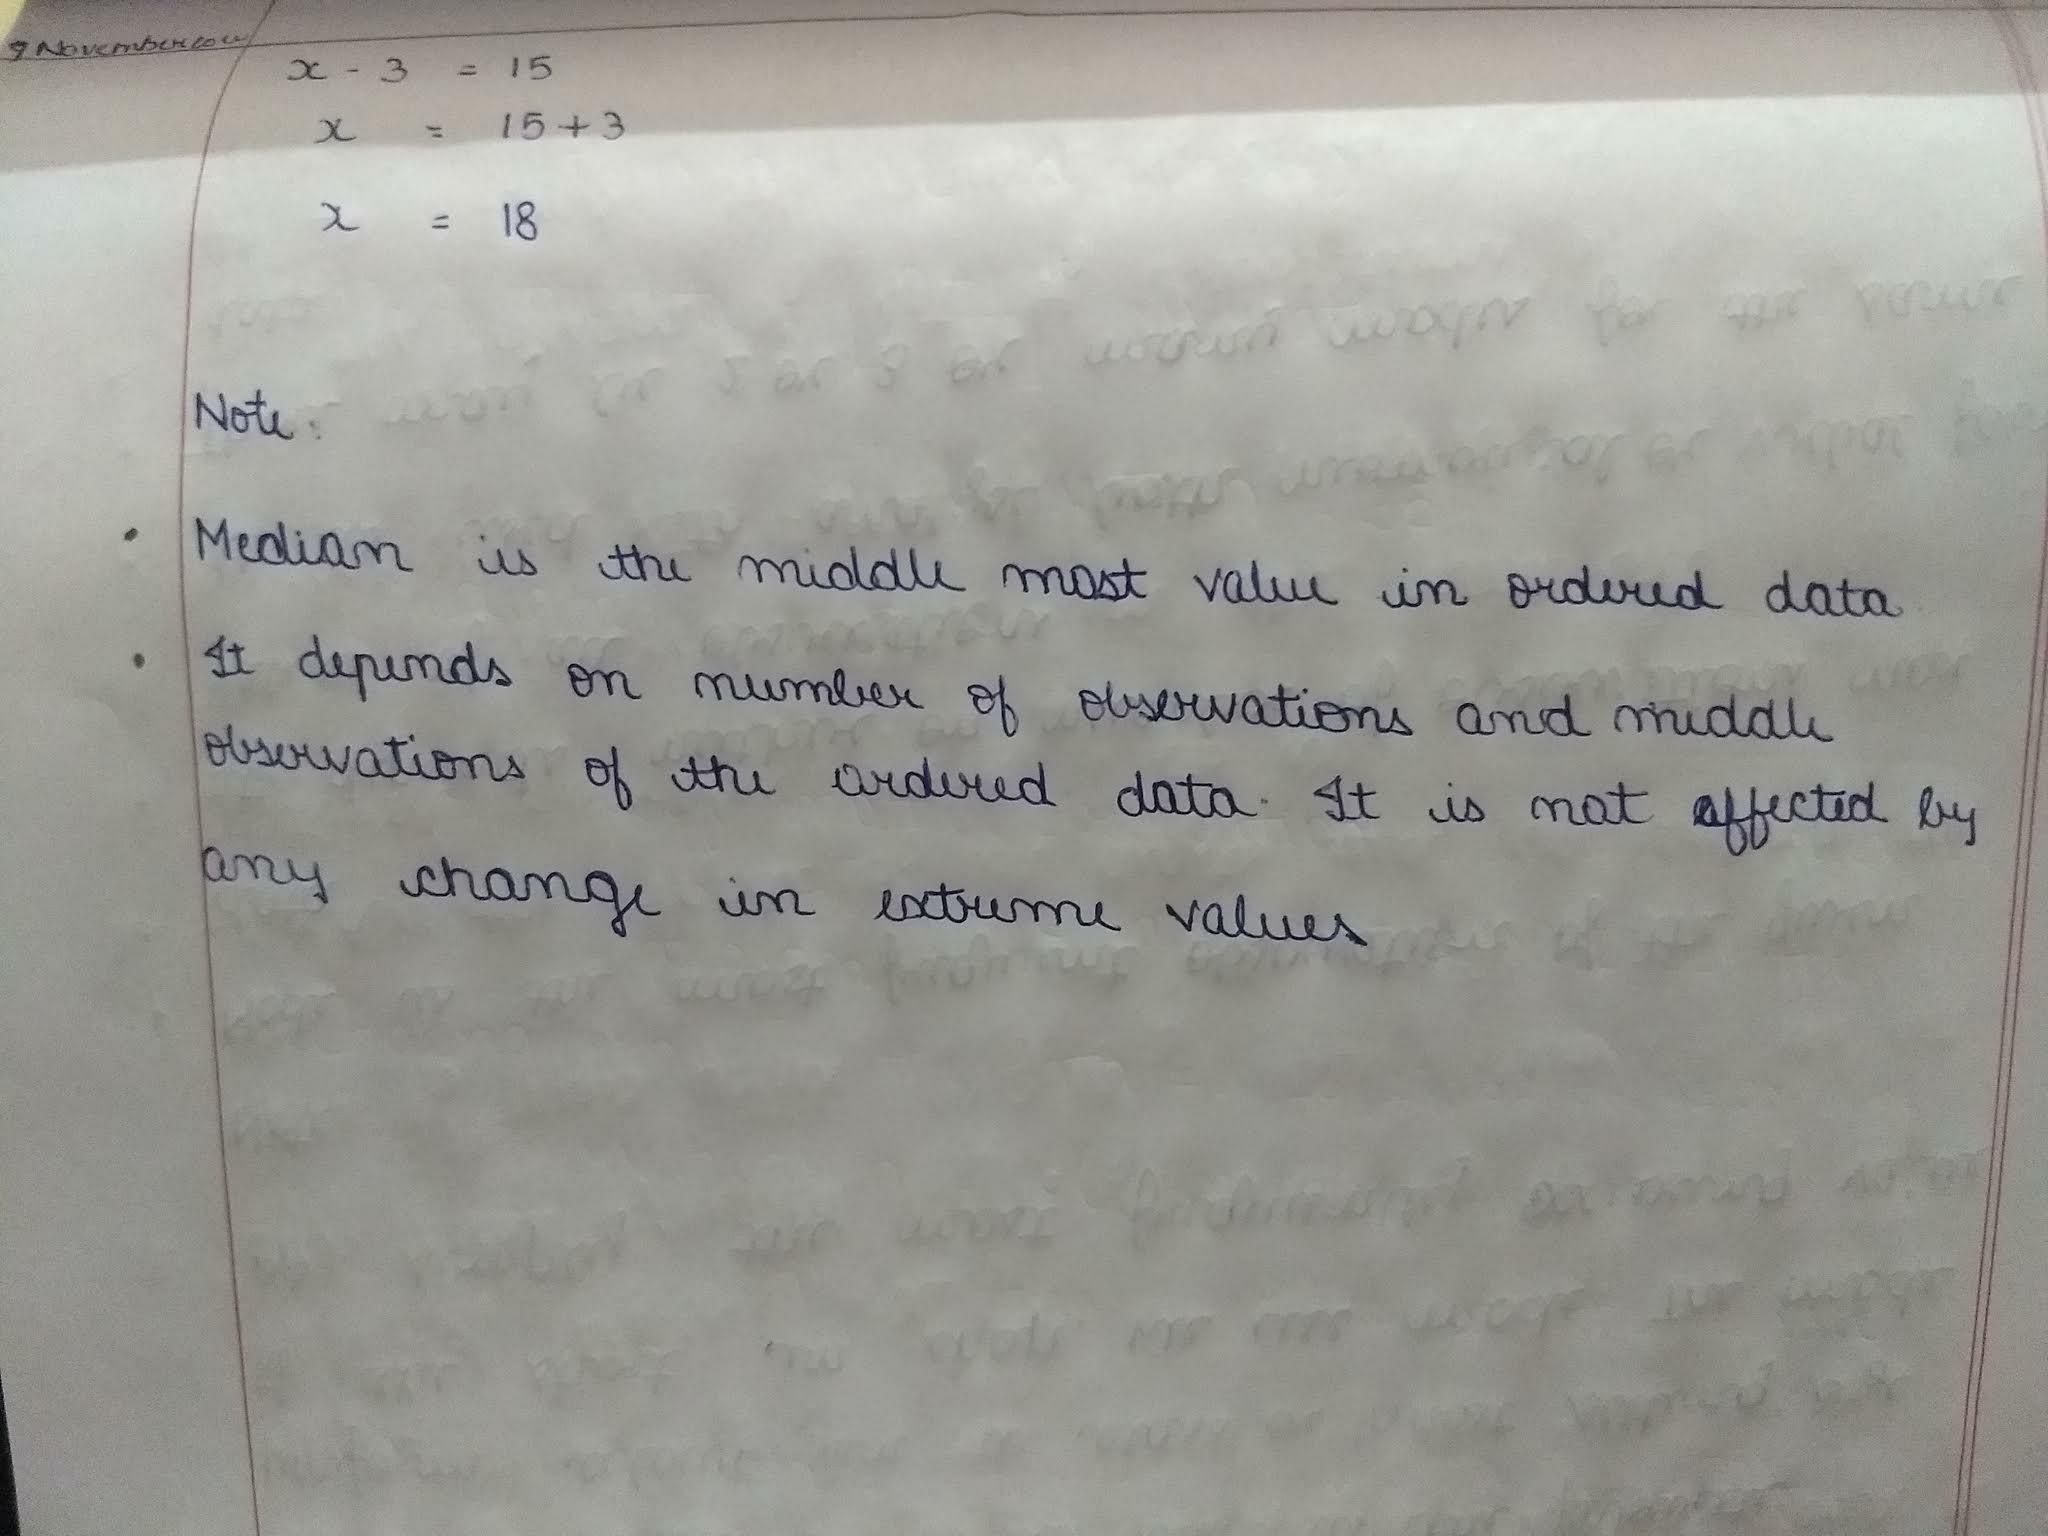 9 November
x - 3 = 15
x = 15 + 3
x = 18
Note:
• Median is the middle most value in ordered data
• It depends on number of observations and middle
observations of the ordered data. It is not affected by
any change in extreme values